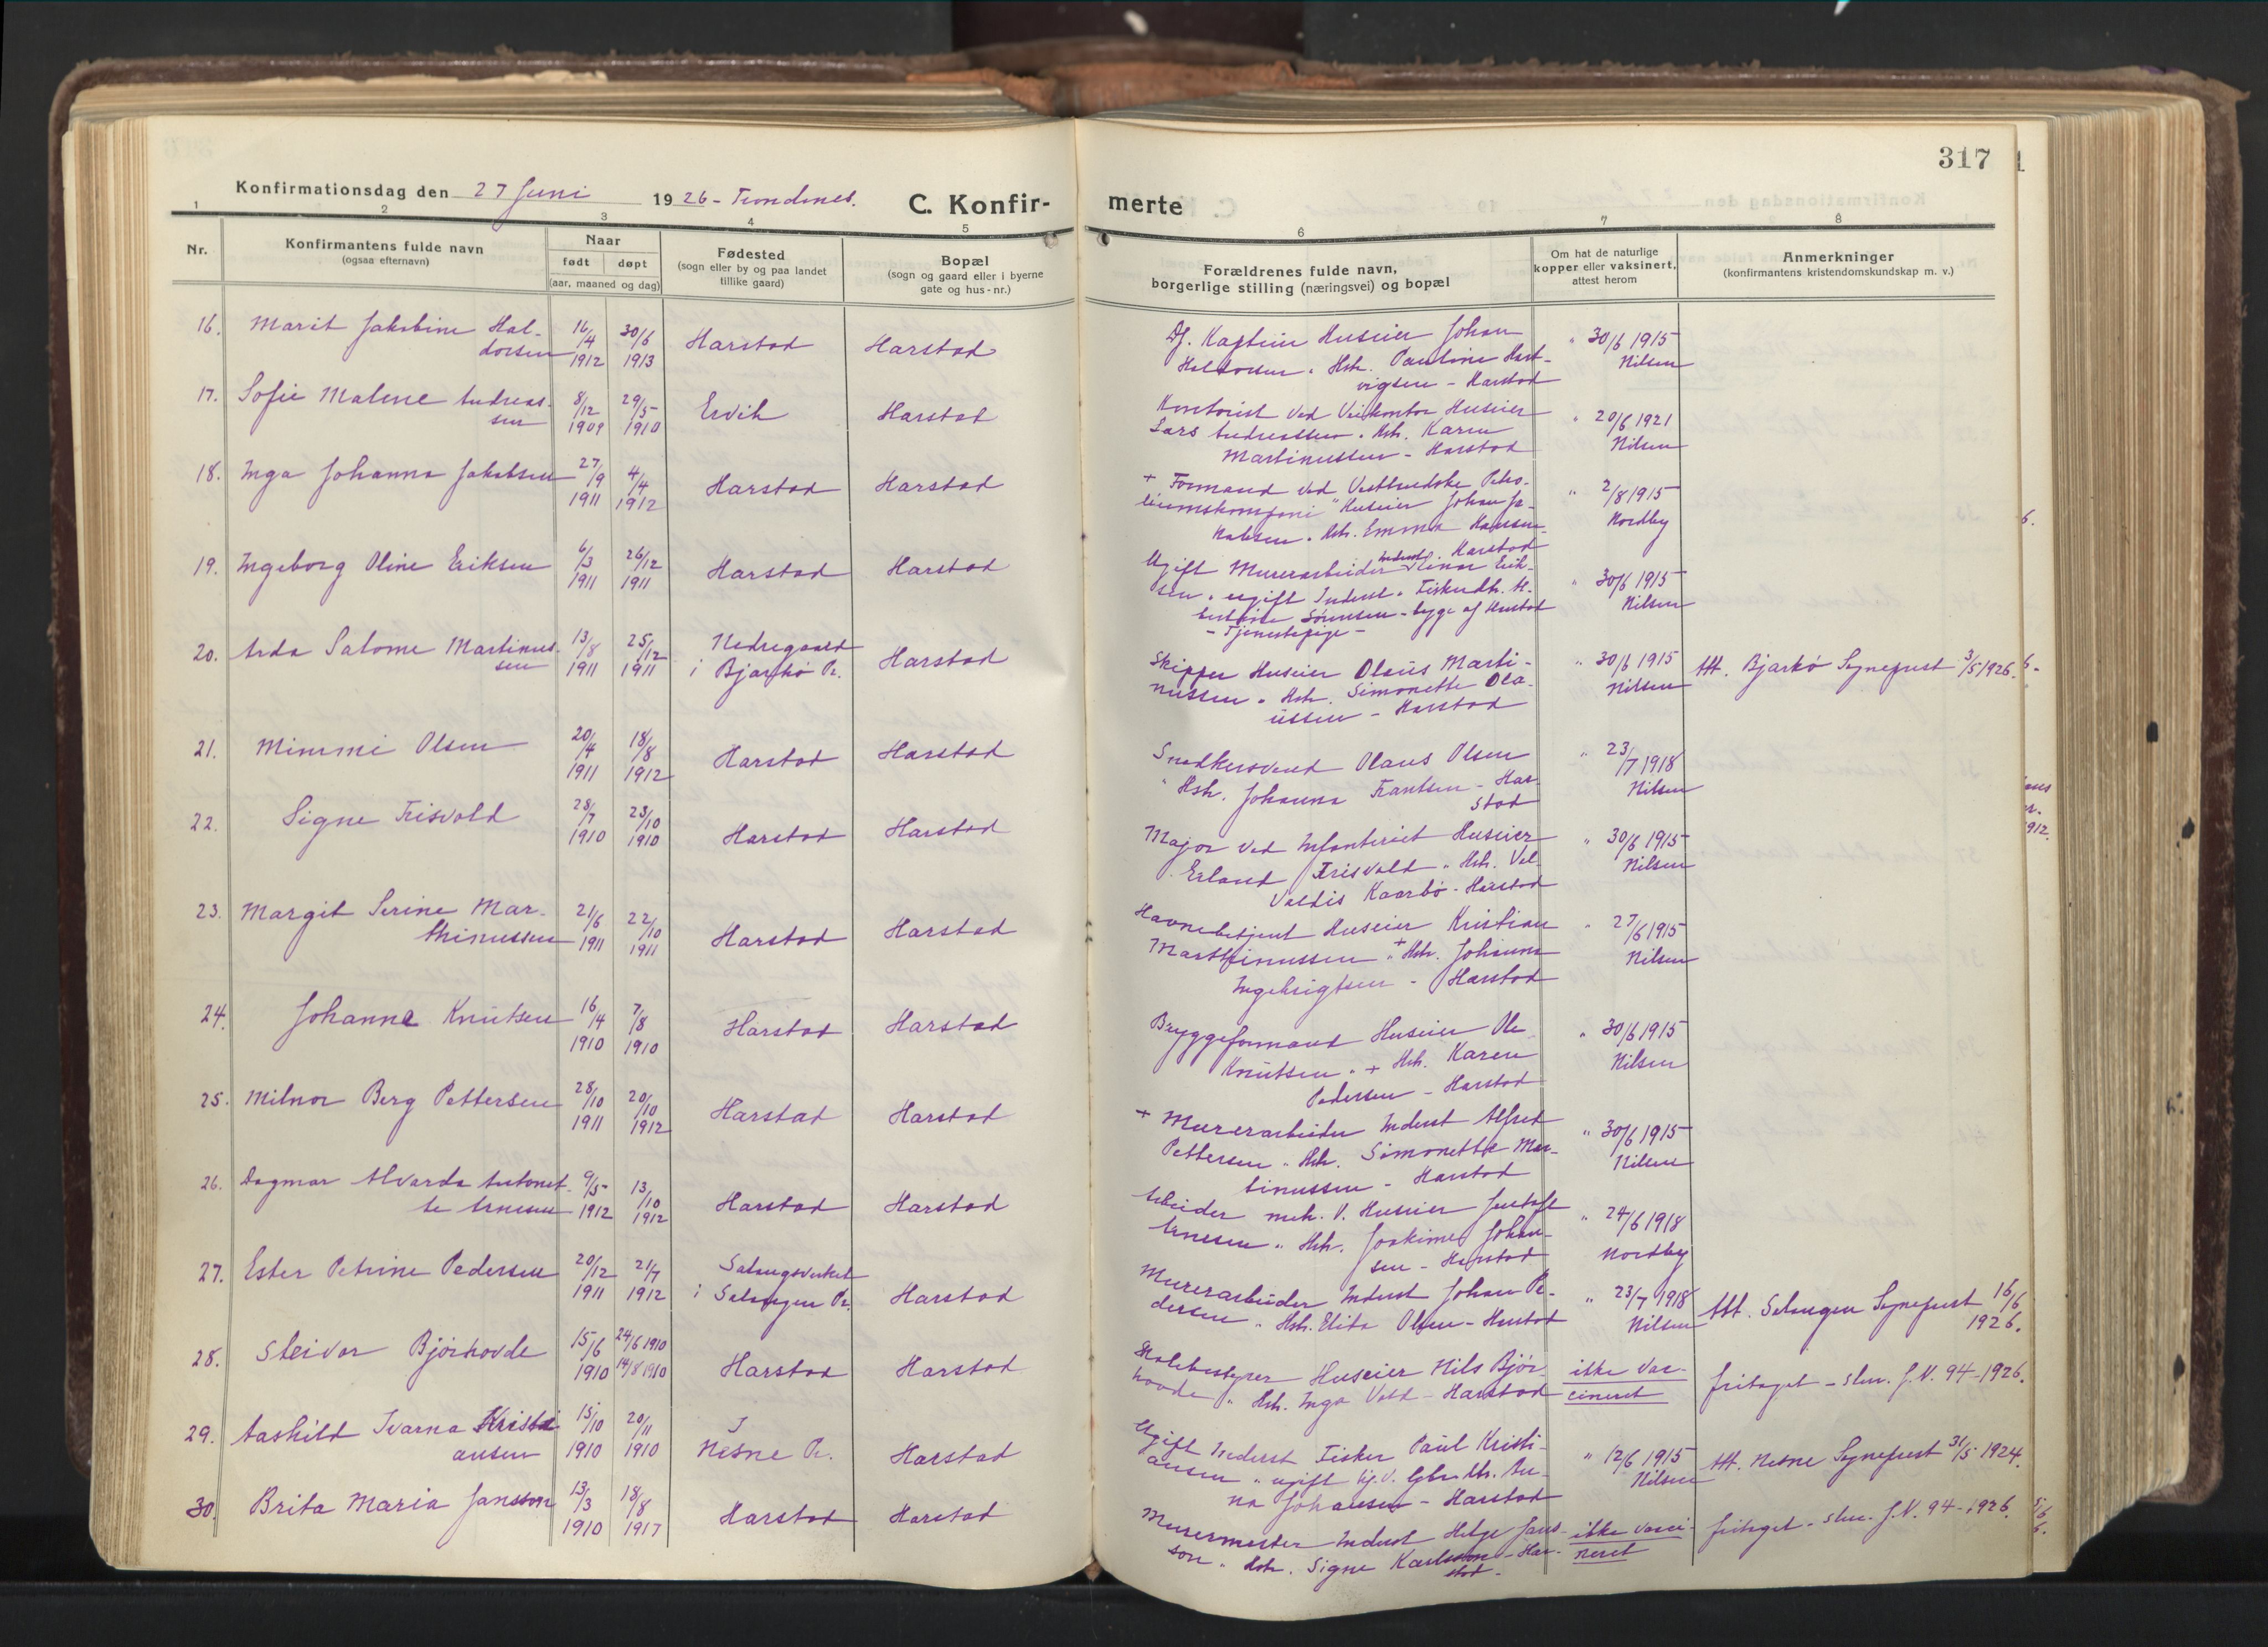 317
Konfirmationsdag den 27 Juni 1926 - Trondenes.
C. Konfir-
merte
1 2 3 4 5 6 7 8
Nr.
Konfirmantens fulde navn
(ogsaa efternavn)
Naar
født døpt
(aar, maaned og dag)
Fødested
(sogn eller by og paa landet
tillike gaard)
Bopæl
(sogn og gaard eller i byerne
gate og hus-nr.)
Forældrenes fulde navn,
borgerlige stilling (næringsvei) og bopæl
Om hat de naturlige
kopper eller vaksinert,
attest herom
Anmerkninger
(konfirmantens kristendomskundskap m. v.)
16. Marit Jakobine Hal-
dorsen 16/4 1912 30/6 1913 Harstad Harstad
Df. Kaptein Huseier Johan
Haldorsen . Hstr. Pauline Hart-
vigsen - Harstad
" 30/6 1915
Nilsen
17. Sofie Malene Andreas-
sen 8/12 1909 29/5 1910 Ervik Harstad
Kontorist ved Veikontor Huseier
Lars Andreassen . Hstr. Karen
Martinussen - Harstad
" 20/6 1921
Nilsen
18. Inga Johanna Jakobsen 27/9 1911 4/4 1912 Harstad Harstad
+ Formand ved Vestlandske Petro-
leumskompani " Huseier Johan Ja-
kobsen . Hstr. Emma Hansen
Harstad
" 2/8 1915
Nordby
19. Ingeborg Oline Eriksen 6/3 1911 26/12 1911 Harstad Harstad
Ugift Murerarbeider Inderst Einar Erik-
sen . ugift Inderst . Fiskerdtr. Al-
Sørensen - bygs af Harstad
- Tjenestepige -
" 30/6 1915
Nilsen
20. Arda Salome Martinus-
sen 13/8 1911 25/12 1911 Nedregaard
i Bjarkø Pr. Harstad
Skipper Huseier Olaus Marti-
nussen . Hstr. Simonette Ola-
ussen - Harstad
" 30/6 1915
Nilsen
Att. Bjarkø Sogneprest 3/5 1926.
21. Mimmi Olsen 20/4 1911 18/8 1912 Harstad Harstad
Snedkersvend Olaus Olsen
" Hstr. Johanna Frantsen - Har-
stad
" 23/7 1918
Nilsen
22. Signe Frisvold 28/7 1910 23/10 1910 Harstad Harstad
Major ved Infanteriet Huseier
Erland Frisvold " Hstr. Val-
Valdis Kaarbø - Harstad
" 30/6 1915
Nilsen
23. Margit Serine Mar-
thinussen 21/6 1911 22/10 1911 Harstad Harstad
Havnebetjent Huseier Kristian
Marthinussen " + Hstr. Johanna
Ingebrigtsen - Harstad
" 27/6 1915
Nilsen
24. Johanne Knutsen 16/4 1910 7/8 1910 Harstad Harstad
Bryggeformand Huseier Ole
Knutsen . + Hstr. Karen
Pedersen - Harstad
" 30/6 1915
Nilsen
25. Milnor Berg Pettersen 28/10 1911 20/10 1912 Harstad Harstad
+ Murerarbeider Inderst Alfred
Pettersen " Hstr. Simonette Mar-
tinussen - Harstad
" 30/6 1915
Nilsen
26. Dagmar Alvarda Antonet-
te Arnesen 9/5 1912 13/10 1912 Harstad Harstad
Arbeider mek. V. Huseier Gustaf
Arnesen " Hstr. Joakime Johan-
sen - Harstad
" 24/6 1918
Nordby
27. Ester Petrine Pedersen 20/12 1911 21/7 1912 Salangsverket
i Salangen Pr. Harstad
Murerarbeider Inderst Johan Pe-
dersen " Hstr. Elita Olsen - Harstad
" 23/7 1918
Nilsen
Att. Salangen Sogneprest 16/6
1926.
28. Steivor Bjørhovde 15/6 1910 24/6 1910
14/8 1910 Harstad Harstad
Skolebestyrer Huseier Nils Bjør-
hovde " Hstr. Inga Vold - Harstad
ikke vac-
cineret
fritaget - skr. J.N. 94-1926.
29. Aashild Ivarna Kristi-
ansen 15/10 1910 20/11 1910 I
Nesne Pr. Harstad
Ugift Inderst Fisker Paul Kristi-
ansen " ugift Gbr. dtr. An-
na Johansen - Harstad
" 12/6 1915
Nilsen
Att. Nesne Sogneprest 31/5 1924.
30. Brita Maria Jansson 13/3 1910 18/8 1917 Harstad Harstad
Murermester Inderst Helge Jans-
son " Hstr. Signe Karlsson - Har-
stad -
ikke vacci-
neret
fritaget - skr. J.N. 94-1926.